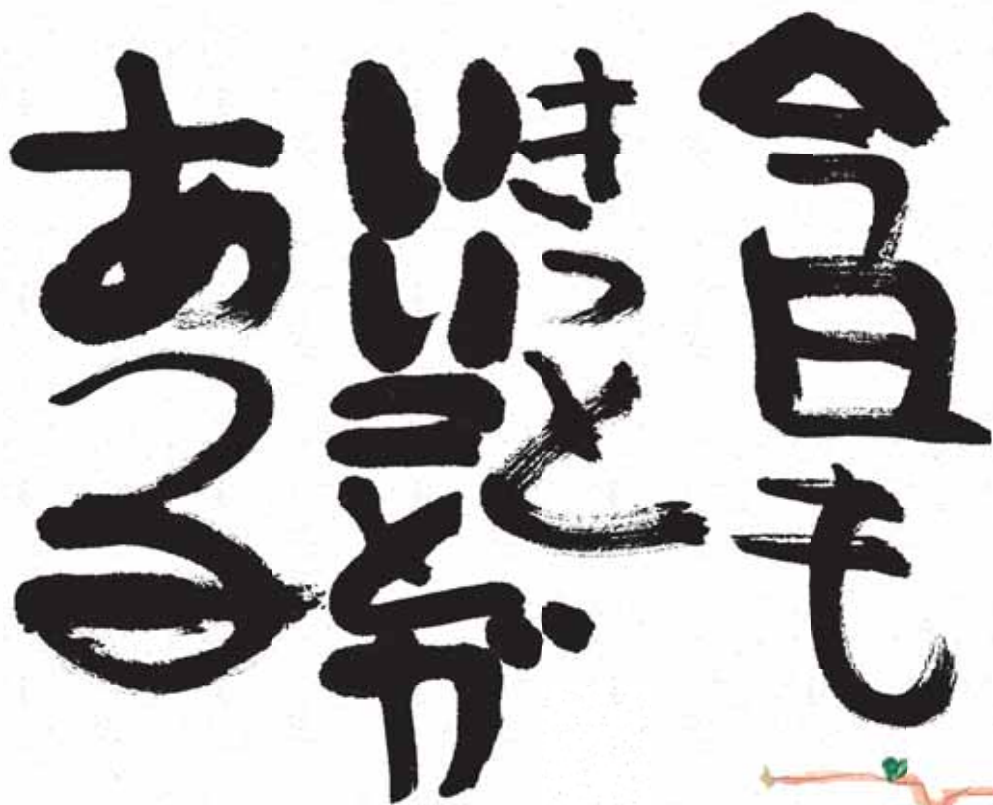 今日も
きっと
いいことが
ある